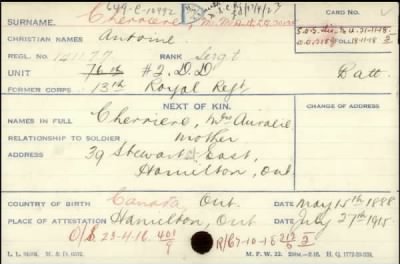 649-C-10992
CARD No.
SURNAME. Cherriere,
CHRISTIAN NAMES Antoine.
REGL. No. RANK Sergt
FOLL. 18-11-18
UNIT 76th #2. D.D Batt.
FORMER CORPS 13th Royal Regt
NEXT OF KIN.
CHANGE OF ADDRESS
NAMES IN FULL Cherriere, Mrs Auralie
RELATIONSHIP TO SOLDIER Mother
ADDRESS 39 Stewart East,
Hamilton, Ont
COUNTRY OF BIRTH Canada, Ont. DATE May 15th 1888
PLACE OF ATTESTATION Hamilton, Ont DATE July 27th 1915
O/S 23-4-16 401/9 R/C 7-10-18 212/6
M. F. W. 22.